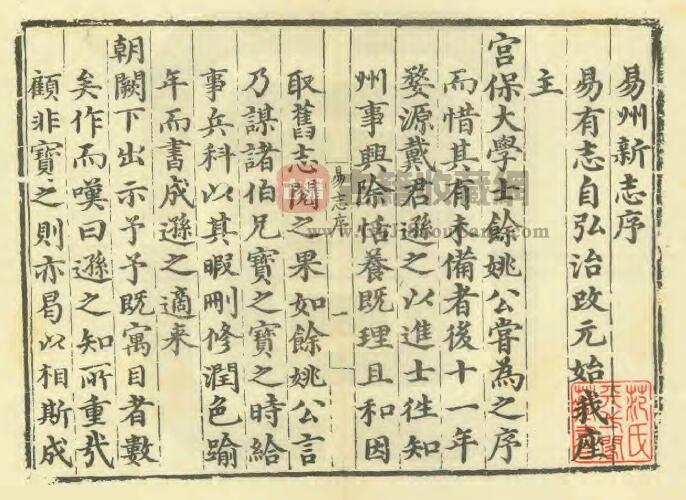 易州新志序
易有志自弘治改元始我座
主
宫保大學士餘姚公嘗為之序
而惜其有未備者後十一年
婺源戴君遜之以進士徃知
州事興除恬養既理且和因
易志序
一
取舊志閱之果如餘姚公言
乃謀諸伯兄寶之寶之時給
事兵科以其暇刪修潤色踰
年而書成遜之適来
朝闕下出示予予既寓目者數
矣作而嘆曰遜之知所重㢤
顧非寶之則亦曷以相斯成